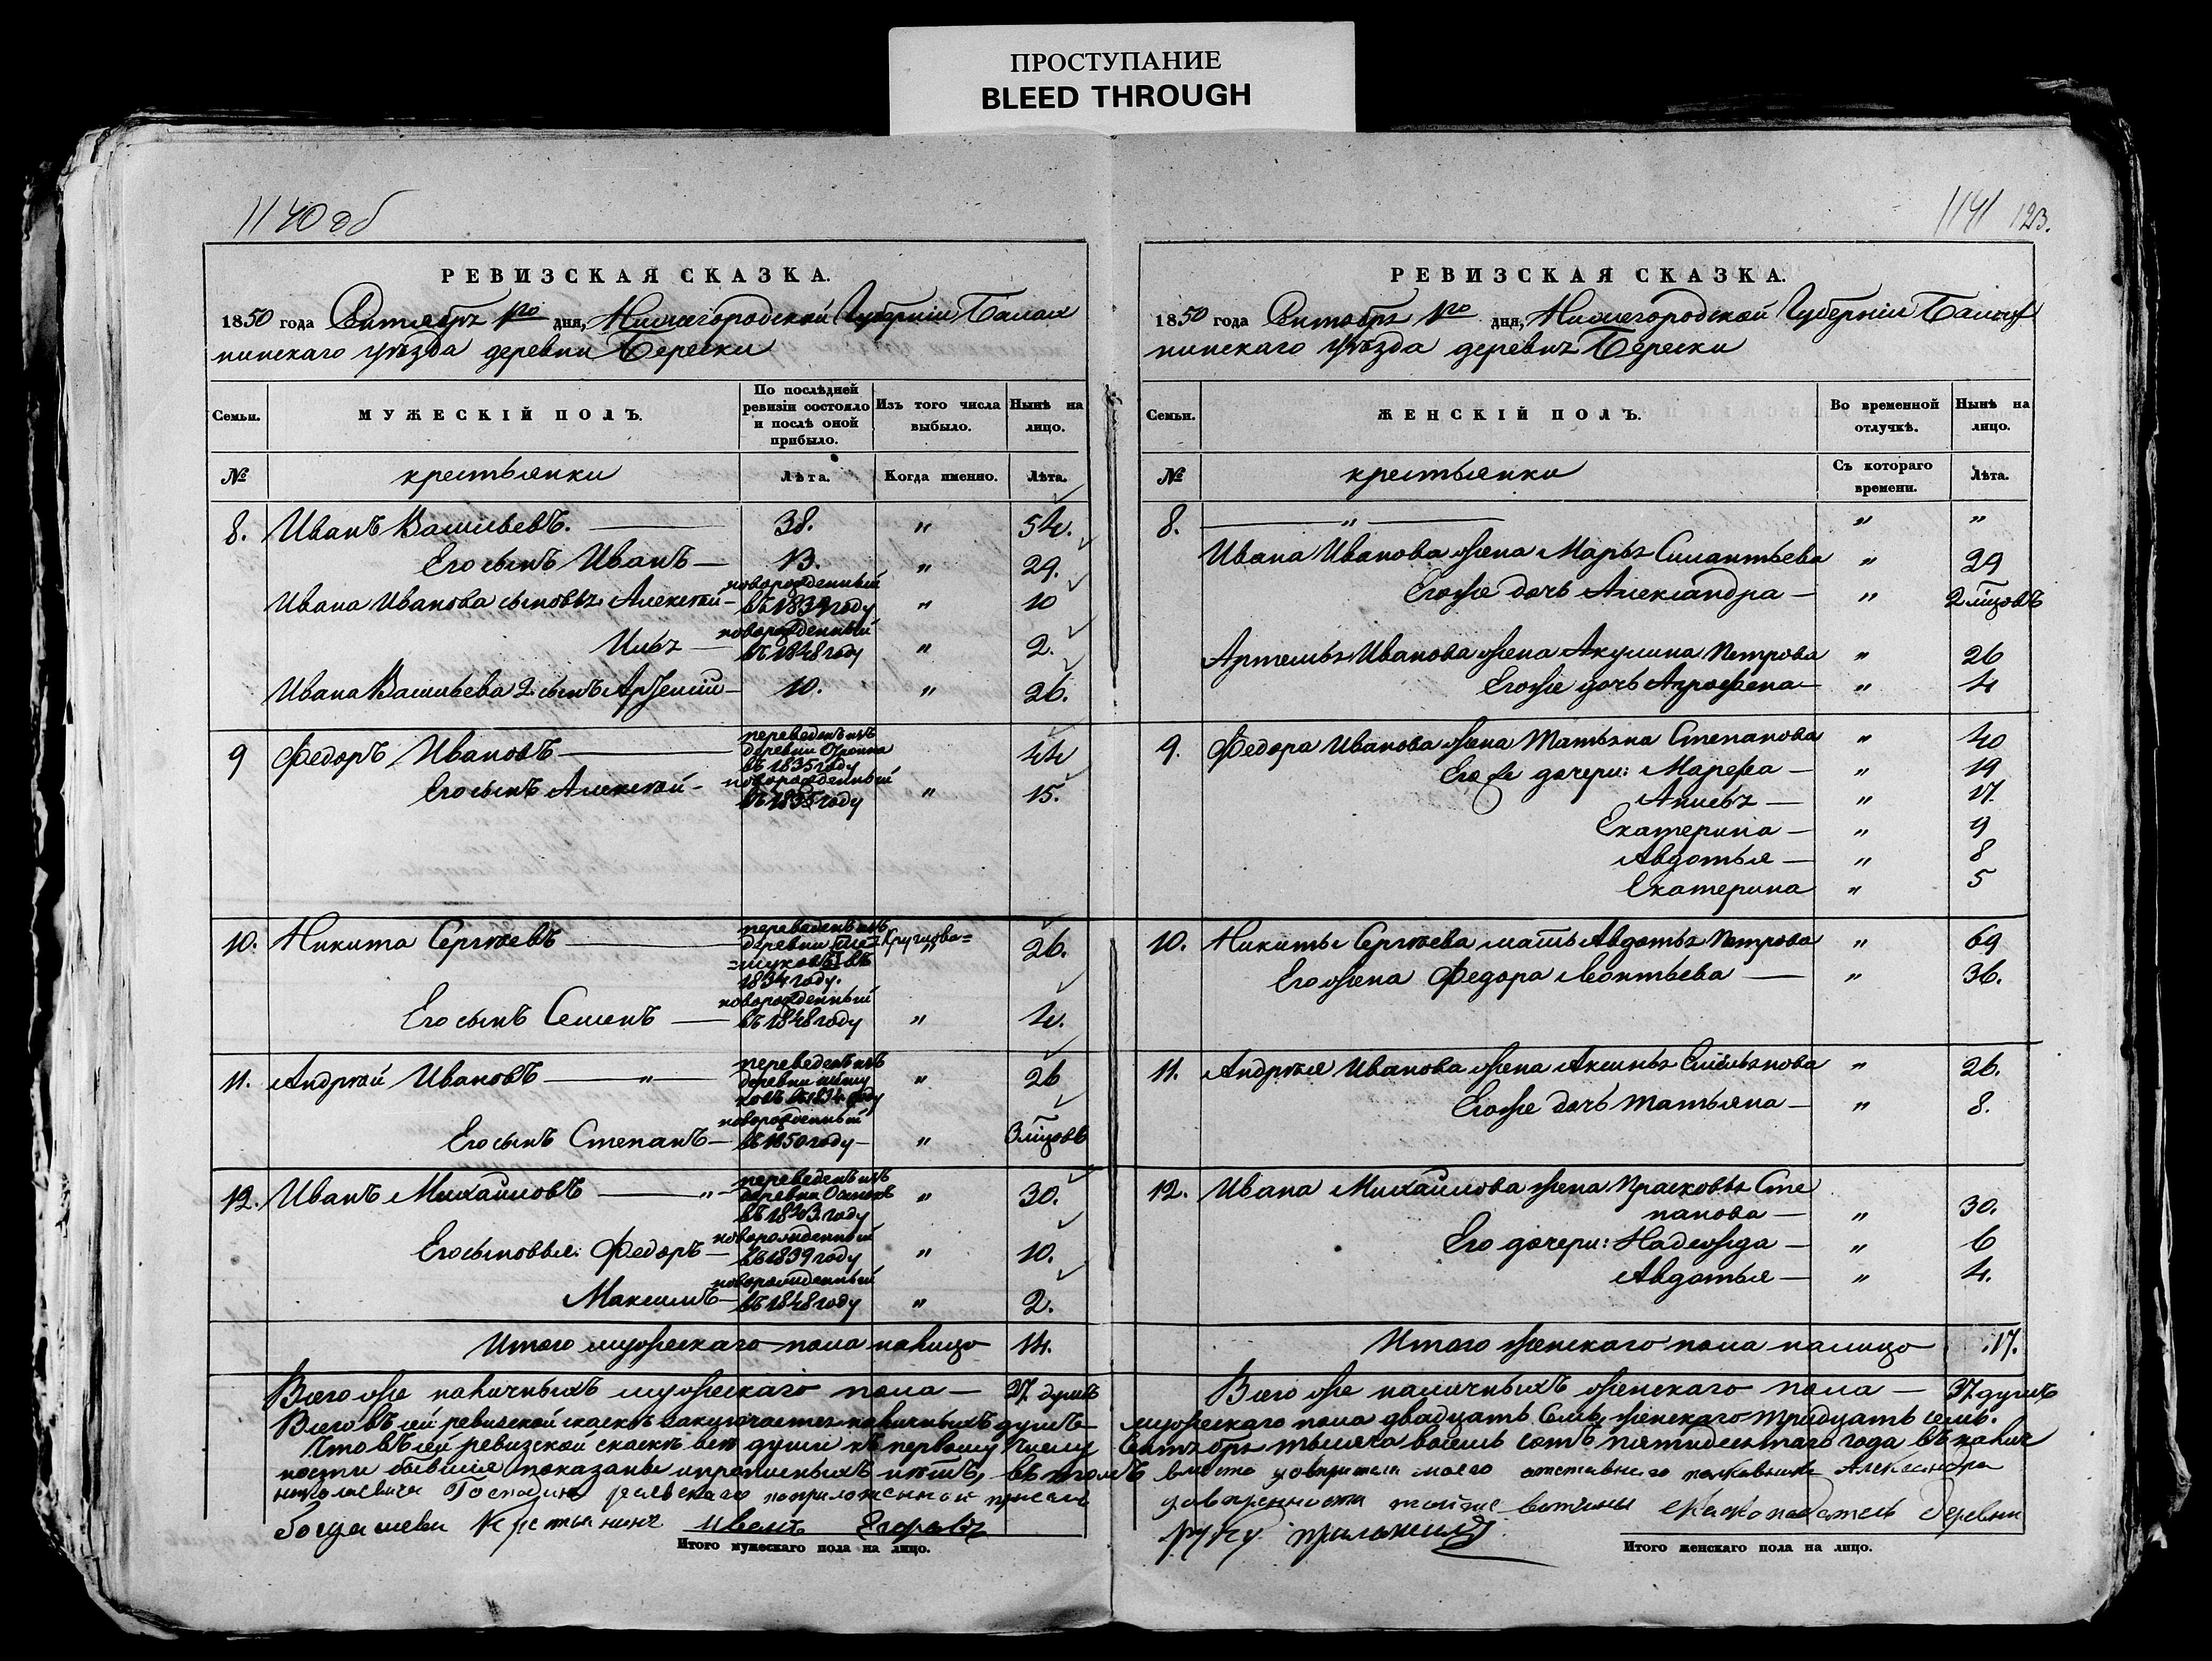 ПРОСТУПАНИЕ
BLEED THROUGH
1140 об
РЕВИЗСКАЯ СКАЗКА.
1850 года Сентября 1го дня, Нижегородской Губерніи Балах
нинскаго уѣзда деревни Березки
Семьи. МУЖЕСКІЙ ПОЛЪ. По послѣдней ревизіи состояло и послѣ оной прибыло. Изъ того числа выбыло. Нынѣ на лицо.
№ крестьянки Лѣта. Когда именно. Лѣта.
8. Иванъ Васильевъ. 38. " 54.
Его сынъ Иванъ 13. " 29.
Ивана Иванова сыновья Алексѣй новорожденный въ 1839 году " 10
Илья новорожденный въ 1848 году " 2.
Ивана Васильева 2. сынъ Артемій 10. " 26.
9 Федоръ Ивановъ переведенъ изъ
деревни
въ 1835 году 44
Его сынъ Алексѣй новорожденный въ 1835 году " 15.
10. Никита Сергѣевъ переведенъ изъ
деревни
въ
1834 году. " 26.
Его сынъ Семенъ новорожденный въ 1848 году " 4.
11. Андрей Ивановъ " переведенъ изъ
деревни
въ 1834 году " 26
Его сынъ Степанъ новорожденный въ 1850 году " 3 мѣсяцовъ
12. Иванъ Михайловъ " переведенъ изъ
деревни
въ 1843 году " 30.
Его сыновья: Федоръ новорожденный въ 1839 году " 10.
Максимъ новорожденный въ 1848 году " 2.
Итого мужескаго пола налицо 14.
Всего же наличныхъ мужескаго пола 27 душъ
Всего въ сей ревизской сказкѣ заключается наличныхъ душъ
Что въ сей ревизской сказкѣ все души къ первому числу
ности бывшія показаны и прописныхъ нѣтъ, въ томъ
николаевича Господина
Крестьянинъ иванъ Егоровъ
Итого мужескаго пола на лицо.
1141 123.
РЕВИЗСКАЯ СКАЗКА.
1850 года Сентября 1го дня, Нижегородской Губерніи Балах
нинскаго уѣзда деревня Березки
Семьи. ЖЕНСКІЙ ПОЛЪ. Во временной отлучкѣ. Нынѣ на лицо.
№ крестьянки Съ котораго времени. Лѣта.
8. " " "
Ивана Иванова жена Марья Силантьева " 29
Егоже дочь Александра " 2 мѣсяцовъ
Артемья Иванова жена Акулина Петрова " 26
Егоже дочь Аграфена " 4
9. Федора Иванова жена Татьяна Степанова " 40
Его же дочери: Марфа " 19
Анисья " 17.
Екатерина " 9
Авдотья " 8
Екатерина " 5
10. Никиты Сергѣева мать Авдотья Петрова " 69
Его жена Федора Леонтьева " 36.
11. Андрея Иванова жена Аксинья Емельянова " 26.
Егоже дочь Татьяна " 8.
12. Ивана Михайлова жена Прасковья Сте
панова " 30.
Его дочери: Надежда " 6
Авдотья " 4.
Итого женскаго пола налицо 17.
Всего же наличныхъ женскаго пола 37 душъ
мужескаго пола двадцать семь, женскаго тридцать семь.
Сентября тысяча восемь сотъ пятидесятаго года въ налич
вместо доверителя моего отставнаго полковника Александра
доверенности вотчины деревни
руку приложилъ
Итого женскаго пола на лицо.